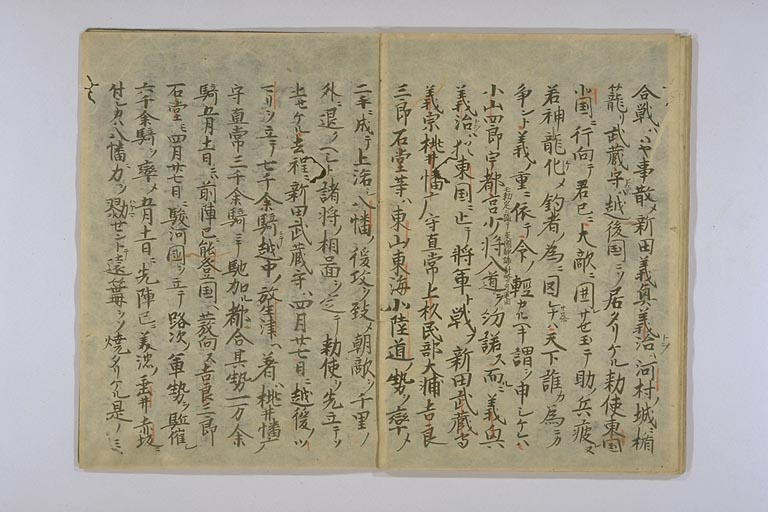 合戦ハ事散メ新田義興義治ハ河村城ニ楯
籠リ武蔵守ハ越後国ニソ居タリケル勅使東国
小国ニ行向テ君已ニ大敵ニ囲レサセ玉テ助ノ兵疲ヌ
若神龍化メ釣者ノ為ニ囚レナハ天下誰カ為ニカ
争ント義ノ重ニ依テ命ノ軽カルヘキ謂ヲ申シケレハ
小山四郎宇都宮少将入道モ勅諾ス而ニ義興
義治ハ猶東国ニ止テ将軍ト戦ヲ新田武蔵守
義宗桃井播广ノ守直常上杉民部大輔吉良
三郎石堂等ハ東山東海小陸道ノ勢ヲ率メ
二手ニ成テ上洛シ八幡ノ後攻ヲ致メ朝敵ヲ千里ノ
外ニ退ヘシト諸将ノ相図ヲ定テ勅使ヲ先立テソ
上セケル去程ニ新田武蔵守四月廿七日ニ越後ノツ
ヨリ立テ七千余騎越中ノ放生津ニ着ハ桃井播广
守直常三千余騎ニテ馳加ル都合其勢一万余
騎五月十一日ニ前陣已能登国ヘ発向ス吉良三郎
石堂モ四月廿七日ニ駿河国ヲ立テ路次ノ軍勢ヲ駈催シ
六千余騎ヲ率メ五月十一日ニ先陣已ニ美濃ノ垂井赤坂ニ
付シカハ八幡ニ力ヲ勠セント遠篝ヲソ焼タリケル是ノミ